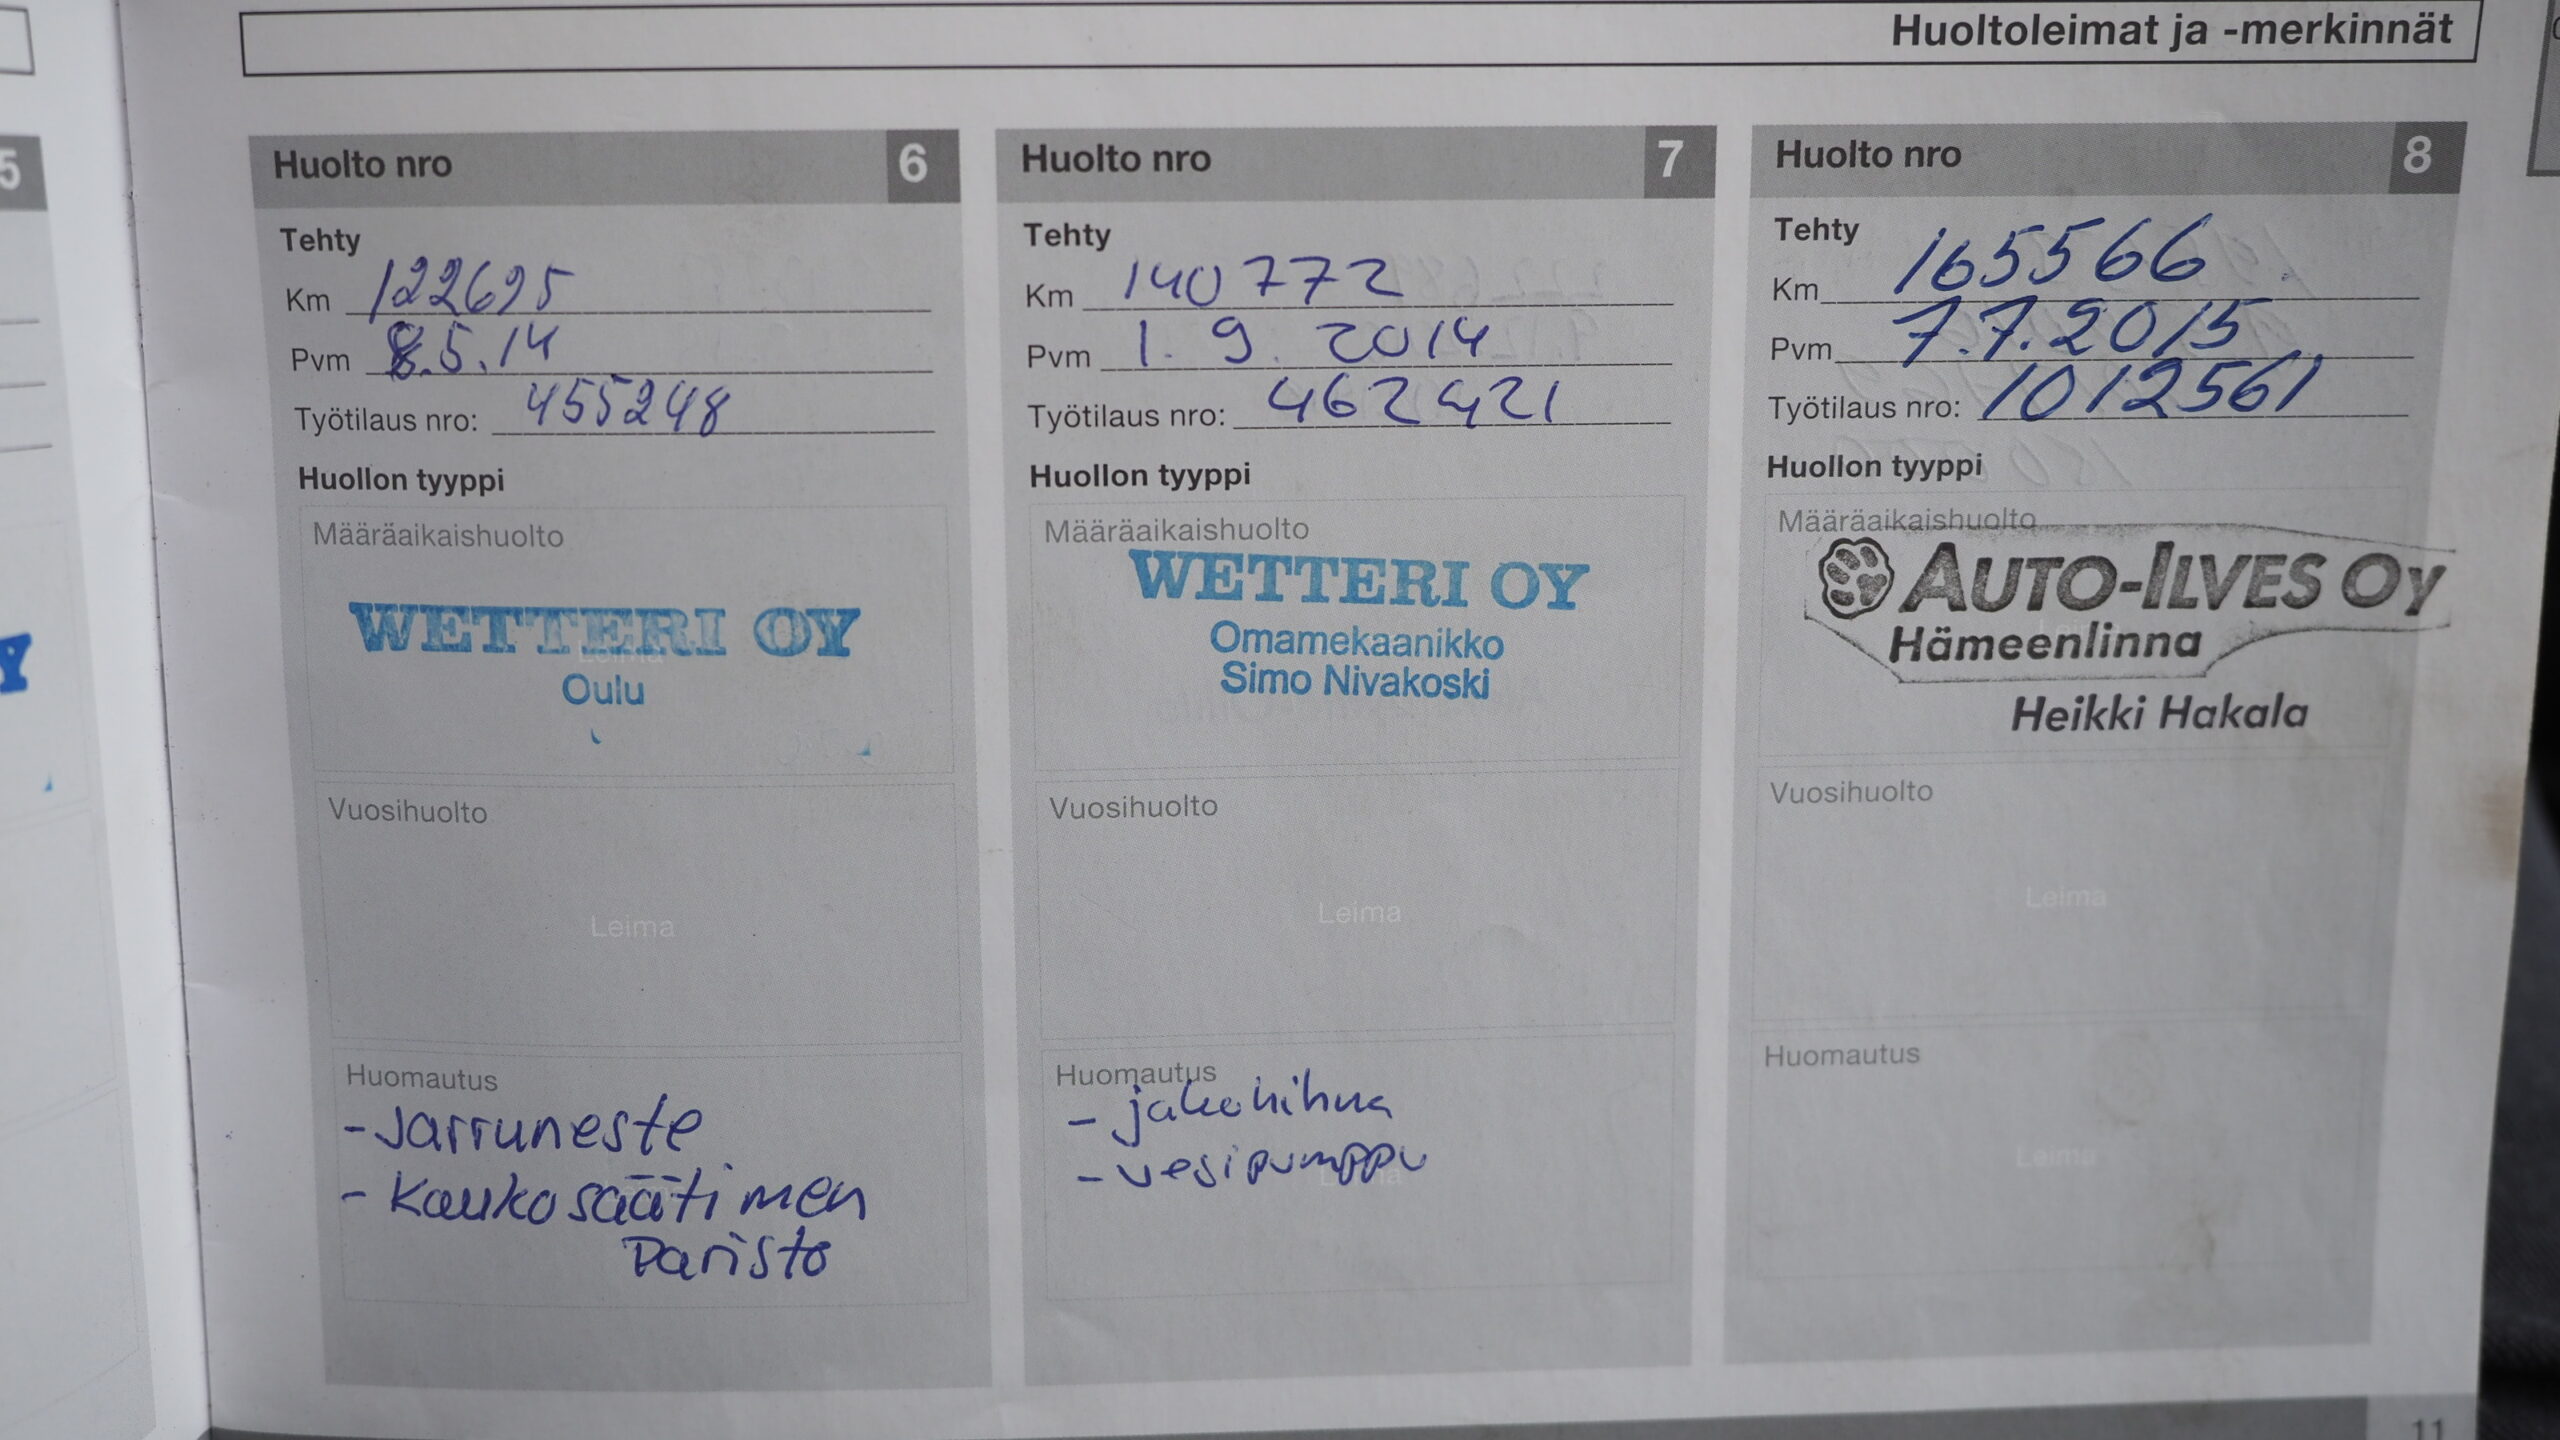 Huoltoleimat ja -merkinnät
5
Y
Huolto nro 6
Tehty
Km 122695
Pvm 8.5.14
Työtilaus nro: 455248
Huollon tyyppi
Määräaikaishuolto
WETTERI OY
Leima
Oulu
Vuosihuolto
Leima
Huomautus
- Jarruneste
- Kaukosäätimen
Paristo
Huolto nro 7
Tehty
Km 140772
Pvm 1.9.2014
Työtilaus nro: 462421
Huollon tyyppi
Määräaikaishuolto
WETTERI OY
Omamekaanikko
Simo Nivakoski
Vuosihuolto
Leima
Huomautus
- jakohihna
- vesipumppu
Huolto nro 8
Tehty
Km 165566
Pvm 7.7.2015
Työtilaus nro: 1012561
Huollon tyyppi
Määräaikaishuolto
AUTO-ILVES OY
Hämeenlinna
Heikki Hakala
Vuosihuolto
Leima
Huomautus
Leima
11